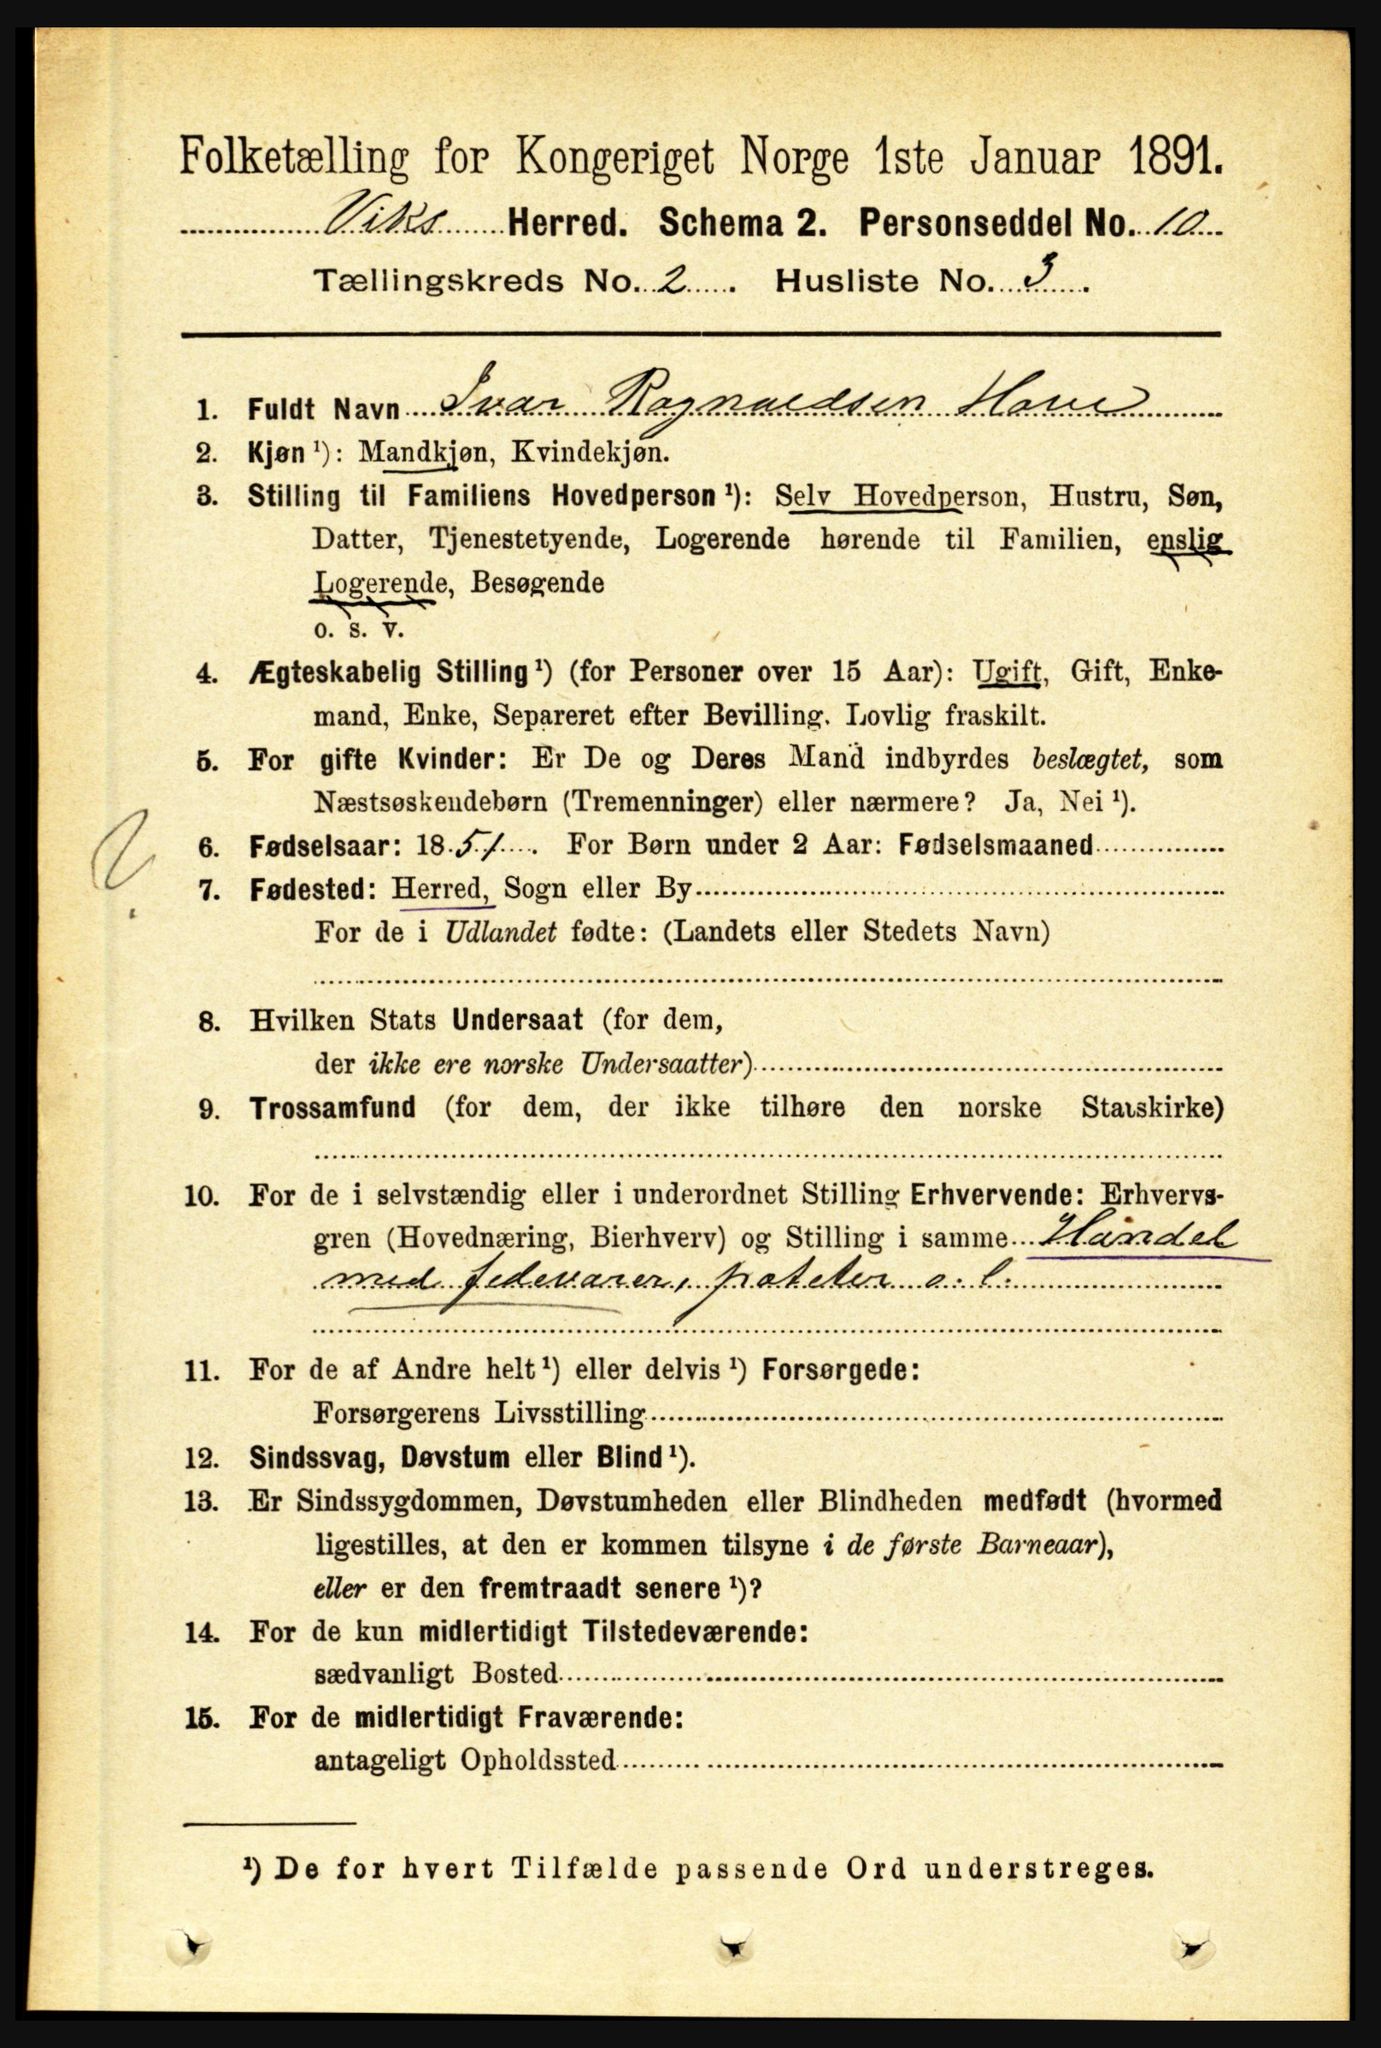 Folketælling for Kongeriget Norge 1ste Januar 1891.
Viks Herred. Schema 2. Personseddel No. 10
Tællingskreds No. 2. Husliste No. 3.
1. Fuldt Navn Ivar Ragnvaldsen Hove
2. Kjøn ¹): Mandkjøn, Kvindekjøn.
3. Stilling til Familiens Hovedperson ¹): Selv Hovedperson, Hustru, Søn,
Datter, Tjenestetyende, Logerende hørende til Familien, enslig
Logerende, Besøgende
o. s. v.
4. Ægteskabelig Stilling ¹) (for Personer over 15 Aar): Ugift, Gift, Enke-
mand, Enke, Separeret efter Bevilling. Lovlig fraskilt.
5. For gifte Kvinder: Er De og Deres Mand indbyrdes beslægtet, som
Næstsøskendebørn (Tremenninger) eller nærmere? Ja, Nei ¹).
6. Fødselsaar: 1851. For Børn under 2 Aar: Fødselsmaaned
7. Fødested: Herred, Sogn eller By
For de i Udlandet fødte: (Landets eller Stedets Navn)
8. Hvilken Stats Undersaat (for dem,
der ikke ere norske Undersaatter)
9. Trossamfund (for dem, der ikke tilhøre den norske Statskirke)
10. For de i selvstændig eller i underordnet Stilling Erhvervende: Erhvervs-
gren (Hovednæring, Bierhverv) og Stilling i samme Handel
med fedevarer, poteter o. l.
11. For de af Andre helt ¹) eller delvis ¹) Forsørgede:
Forsørgerens Livsstilling
12. Sindssvag, Døvstum eller Blind ¹).
13. Er Sindssygdommen, Døvstumheden eller Blindheden medfødt (hvormed
ligestilles, at den er kommen tilsyne i de første Barneaar),
eller er den fremtraadt senere ¹)?
14. For de kun midlertidigt Tilstedeværende:
sædvanligt Bosted
15. For de midlertidigt Fraværende:
antageligt Opholdssted
¹) De for hvert Tilfælde passende Ord understreges.